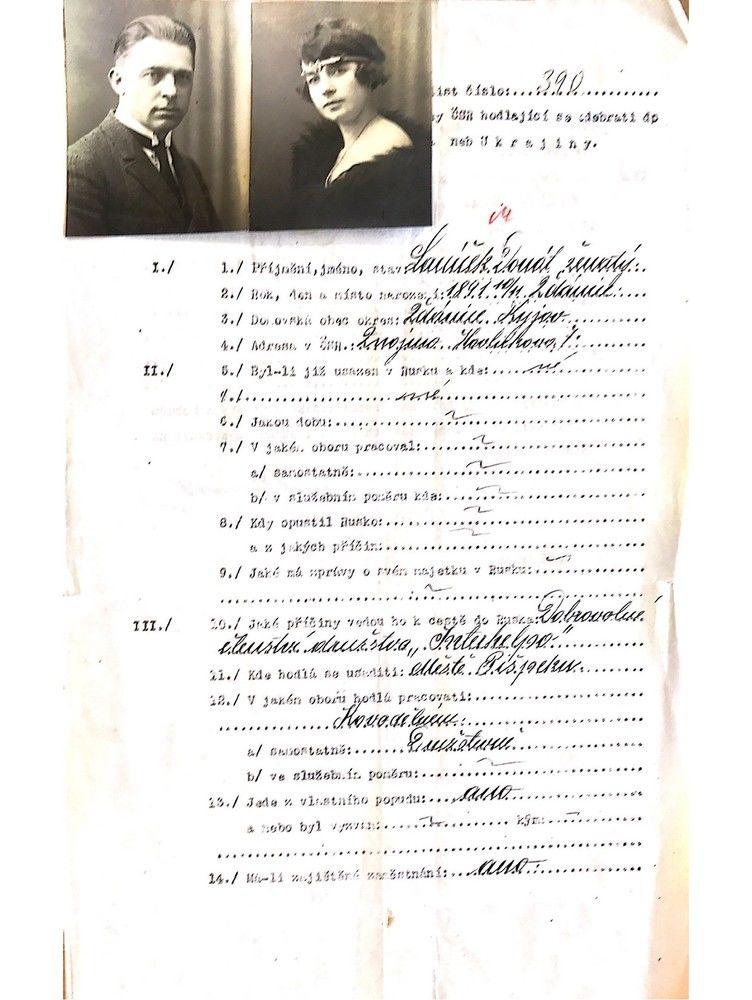 list číslo: 390
y ČSR hodlající se odebrati do
neb Ukrajiny.
I./ 1./ Příjmění, jméno, stav: ženatý
2./ Rok, den a místo narození: 1891 Ždánice
3./ Domovská obec okres: Ždánice Kyjov
4./ Adresa v ČSR.: Znojmo 7.
II./ 5./ Byl-li již usazen v Rusku a kde: né
né
6./ Jakou dobu:
7./ V jakém oboru pracoval:
a/ samostatně:
b/ v služebním poměru kde:
8./ Kdy opustil Rusko:
a z jakých příčin:
9./ Jaké má zprávy o svém majetku v Rusku:
III./ 10./ Jaké příčiny vedou ho k cestě do Ruska: Dobrovolné
členství družstva „Interhelpo"
11./ Kde hodlá se usaditi: Městě Pišpeku
12./ V jakém oboru hodlá pracovati:
Kovodělném
a/ samostatně:
b/ ve služebním poměru:
13./ Jede z vlastního popudu: ano
a nebo byl vyzván: kým:
14./ Má-li zajištěné zaměstnání: ano